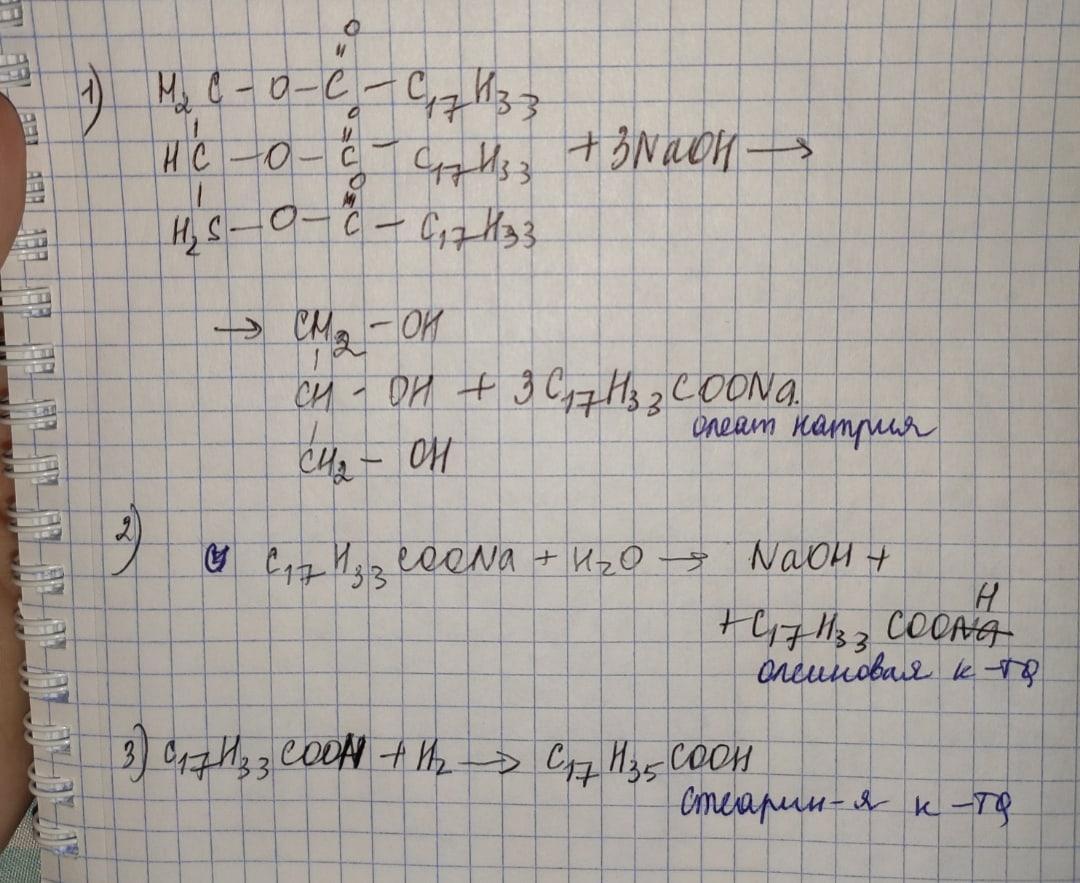 O
1) H₂C - O - C - C₁₇H₃₃
O
HC - O - C - C₁₇H₃₃ + 3NaOH →
O
H₂S - O - C - C₁₇H₃₃
→ CH₂ - OH
CH - OH + 3C₁₇H₃₃COONa.
олеат натрия
CH₂ - OH
2) C₁₇H₃₃COONa + H₂O → NaOH +
H
+ C₁₇H₃₃COONa
олеиновая к-та
3) C₁₇H₃₃COOH + H₂ → C₁₇H₃₅COOH
стеарин-я к-та